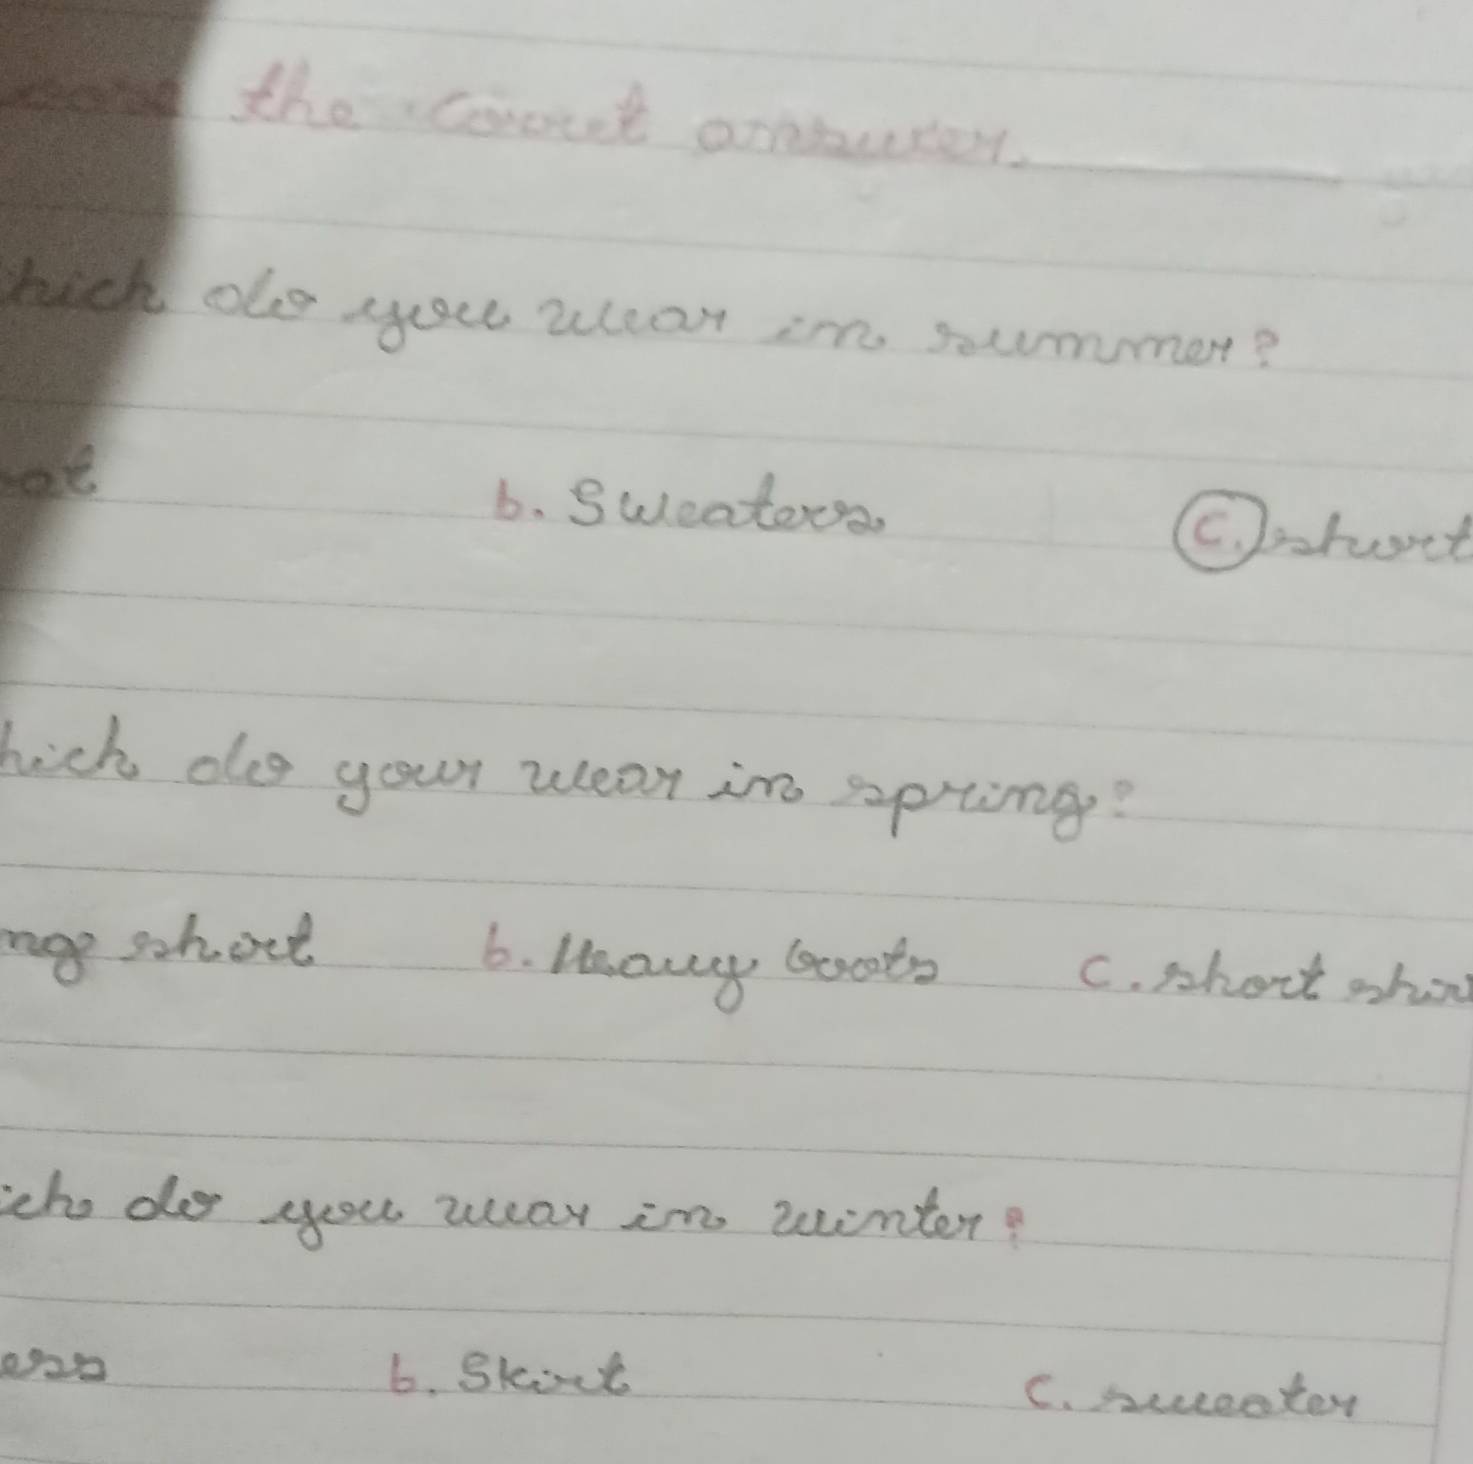 the correct answer.
hich do you wear in summer?
b. Sweaters c. short
hich do your wear in spring?
short b. Heavy boots c. short
do you wear in winter?
b. Skirt c. sweater